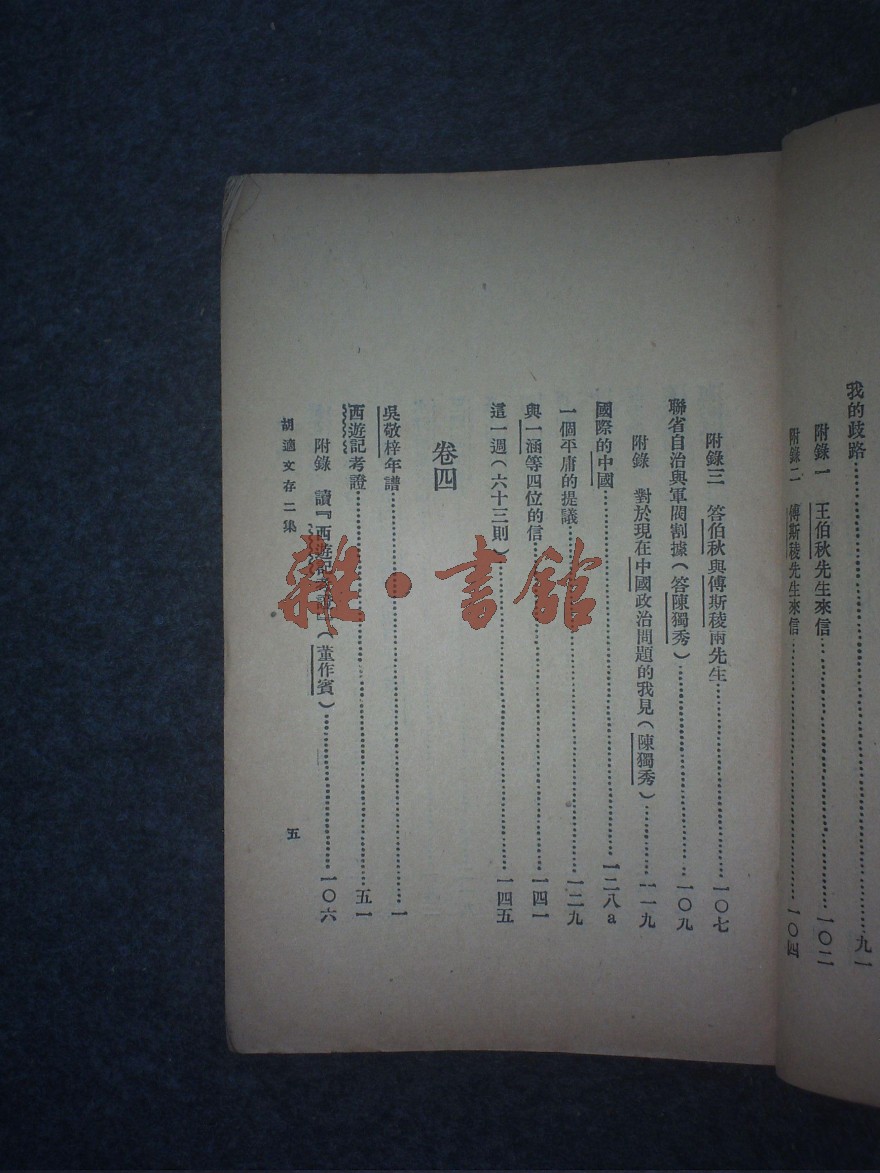 我的歧路……九一
附錄一 王伯秋先生來信……一〇二
附錄二 傅斯稜先生來信……一〇四
附錄三 答伯秋與傅斯稜兩先生……一〇七
聯省自治與軍閥割據(答陳獨秀)……一〇九
附錄 對於現在中國政治問題的我見(陳獨秀)……一一九
國際的中國……一二八a
一個平庸的提議……一二九
與一涵等四位的信……一四一
這一週(六十三則)……一四五
卷四
吳敬梓年譜……一
西遊記考證……五一
附錄 讀『西遊記考證』(董作賓)……一〇六
胡適文存二集
五
雜·書館